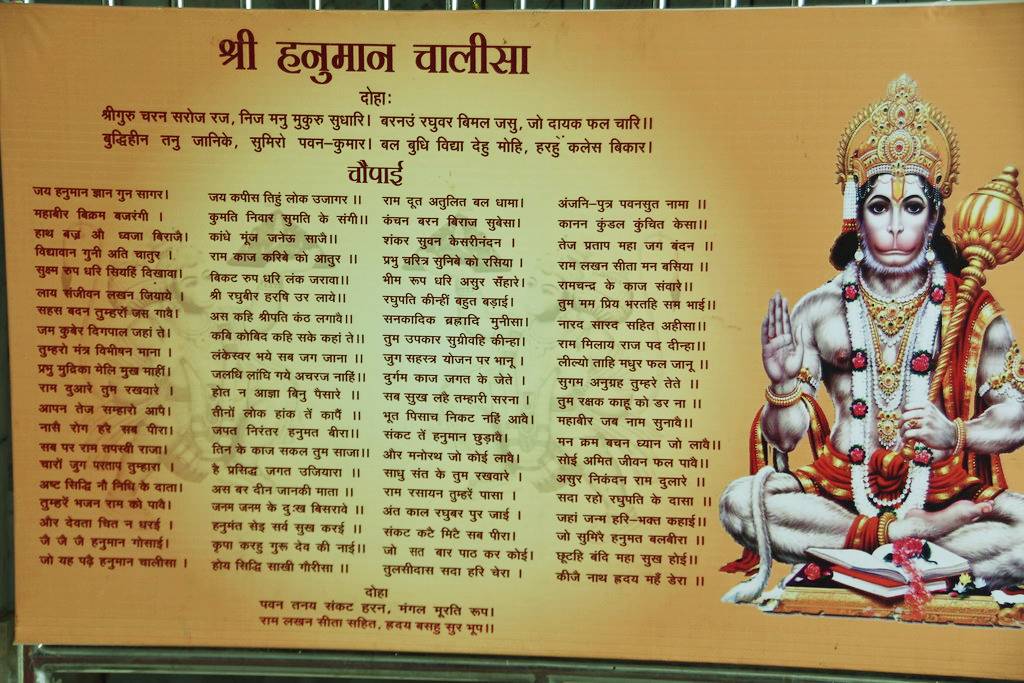 श्री हनुमान चालीसा
दोहाः
श्रीगुरु चरन सरोज रज, निज मनु मुकुरु सुधारि। बरनउं रघुवर बिमल जसु, जो दायक फल चारि।।
बुद्धिहीन तनु जानिके, सुमिरो पवन–कुमार। बल बुधि विद्या देहु मोहि, हरहुं कलेस बिकार।
चौपाई
जय हनुमान ज्ञान गुन सागर। जय कपीस तिहुं लोक उजागर ।। राम दूत अतुलित बल धामा। अंजनि–पुत्र पवनसुत नामा ।।
महाबीर बिक्रम बजरंगी । कुमति निवार सुमति के संगी।। कंचन बरन बिराज सुबेसा। कानन कुंडल कुंचित केसा।।
हाथ बज्र औ ध्वजा बिराजै। कांधे मूंज जनेऊ साजै।। शंकर सुवन केसरीनंदन । तेज प्रताप महा जग बंदन ।।
विद्यावान गुनी अति चातुर । राम काज करिबे को आतुर ।। प्रभु चरित्र सुनिबे को रसिया । राम लखन सीता मन बसिया ।।
सुक्ष्म रुप धरि सियहिं दिखावा। बिकट रुप धरि लंक जरावा।। भीम रूप धरि असुर सँहारे। रामचन्द्र के काज संवारे।।
लाय संजीवन लखन जियाये । श्री रघुबीर हरषि उर लाये।। रघुपति कीन्हीं बहुत बड़ाई। तुम मम प्रिय भरतहि सम भाई।।
सहस बदन तुम्हरों जस गावै। अस कहि श्रीपति कंठ लगावै।। सनकादिक ब्रह्रादि मुनीसा। नारद सारद सहित अहीसा।।
जम कुबेर दिगपाल जहां ते। कबि कोबिद कहि सके कहां ते।। तुम उपकार सुग्रीवहि कीन्हा। राम मिलाय राज पद दीन्हा।।
तुम्हरो मंत्र विभीषन माना । लंकेस्वर भये सब जग जाना ।। जुग सहस्त्र योजन पर भानू । लील्यो ताहि मधुर फल जानू ।।
प्रभु मुद्रिका मेलि मुख माहीं। जलधि लांघि गये अचरज नाहिं।। दुर्गम काज जगत के जेते । सुगम अनुग्रह तुम्हरे तेते ।।
राम दुआरे तुम रखवारे । होत न आज्ञा बिनु पैसारे ।। सब सुख लहै तम्हारी सरना । तुम रक्षक काहू को डर ना ।।
आपन तेज सम्हारो आपै। तीनों लोक हांक तें कापैं ।। भूत पिसाच निकट नहिं आवै। महाबीर जब नाम सुनावै।।
नासै रोग हरे सब पीरा। जपत निरंतर हनुमत बीरा।। संकट तें हनुमान छुड़ावै। मन क्रम बचन ध्यान जो लावै।।
सब पर राम तपस्वी राजा। तिन के काज सकल तुम साजा।। और मनोरथ जो कोई लावै। सोई अमित जीवन फल पावै।।
चारों जुग परताप तुम्हारा । है प्रसिद्ध जगत उजियारा ।। साधु संत के तुम रखवारे । असुर निकंदन राम दुलारे ।।
अष्ट सिद्धि नौ निधि के दाता। अस बर दीन जानकी माता ।। राम रसायन तुम्हरें पासा । सदा रहो रघुपति के दासा ।।
तुम्हरें भजन राम को पावै। जनम जनम के दुःख बिसरावे ।। अंत काल रघुबर पुर जाई । जहां जन्म हरि–भक्त कहाई।।
और देवता चित न धरई । हनुमंत सेइ सर्व सुख करई ।। संकट कटै मिटै सब पीरा। जो सुमिरै हनुमत बलबीरा ।।
जै जै जै हनुमान गोसाई। कृपा करहु गुरू देव की नाई।। जो सत बार पाठ कर कोई। छूटहि बंदि महा सुख होई।।
जो यह पढ़ै हनुमान चालीसा । होय सिद्धि साखी गौरीसा ।। तुलसीदास सदा हरि चेरा । कीजै नाथ ह्रदय महँ डेरा ।।
दोहा
पवन तनय संकट हरन, मंगल मूरति रूप।
राम लखन सीता सहित, ह्रदय बसहु सुर भूप।।